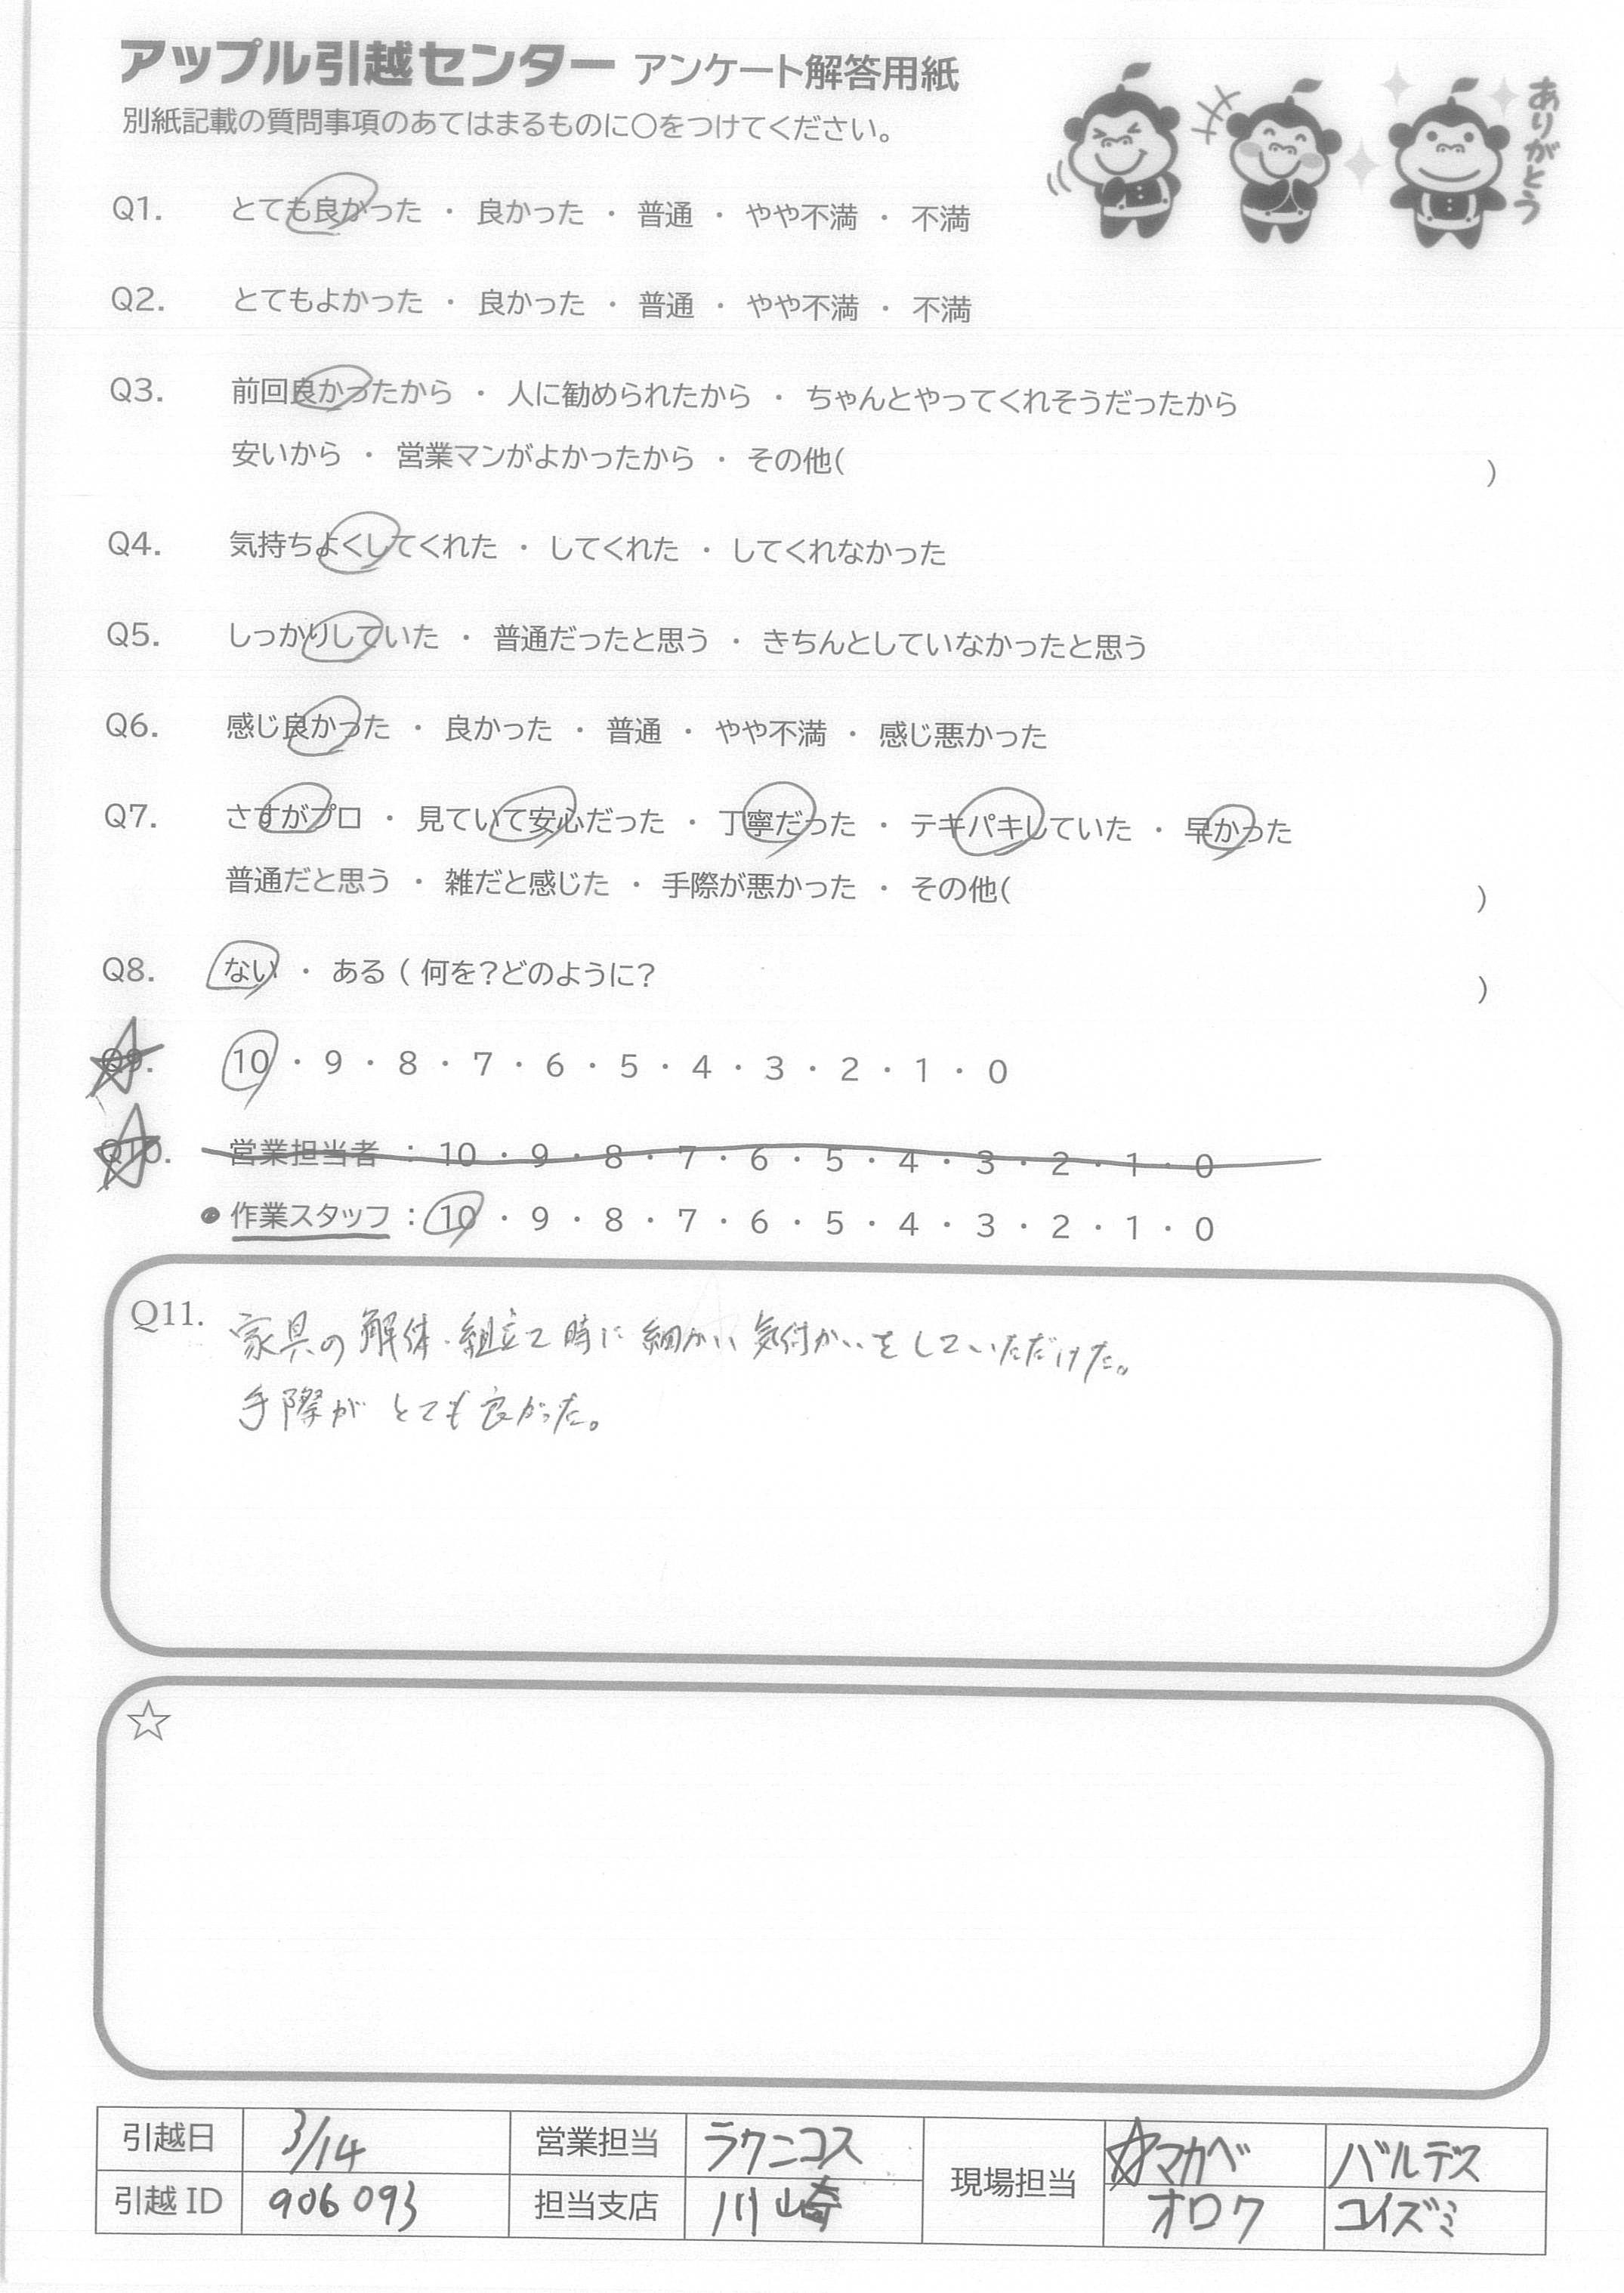 アップル引越センター アンケート解答用紙
別紙記載の質問事項のあてはまるものに○をつけてください。
ありがとう
Q1. とても良かった ・ 良かった ・ 普通 ・ やや不満 ・ 不満
Q2. とてもよかった ・ 良かった ・ 普通 ・ やや不満 ・ 不満
Q3. 前回良かったから ・ 人に勧められたから ・ ちゃんとやってくれそうだったから
安いから ・ 営業マンがよかったから ・ その他( )
Q4. 気持ちよくしてくれた ・ してくれた ・ してくれなかった
Q5. しっかりしていた ・ 普通だったと思う ・ きちんとしていなかったと思う
Q6. 感じ良かった ・ 良かった ・ 普通 ・ やや不満 ・ 感じ悪かった
Q7. さすがプロ ・ 見ていて安心だった ・ 丁寧だった ・ テキパキしていた ・ 早かった
普通だと思う ・ 雑だと感じた ・ 手際が悪かった ・ その他( )
Q8. ない ・ ある ( 何を?どのように? )
Q9. 10 ・ 9 ・ 8 ・ 7 ・ 6 ・ 5 ・ 4 ・ 3 ・ 2 ・ 1 ・ 0
Q10. 営業担当者 : 10 ・ 9 ・ 8 ・ 7 ・ 6 ・ 5 ・ 4 ・ 3 ・ 2 ・ 1 ・ 0
●作業スタッフ : 10 ・ 9 ・ 8 ・ 7 ・ 6 ・ 5 ・ 4 ・ 3 ・ 2 ・ 1 ・ 0
Q11. 家具の解体・組立て時に細かい気付かいをしていただけた。
手際がとても良かった。
☆
引越日 3/14 営業担当 ラクニコス 現場担当 ☆マカベ バルデス
引越ID 906093 担当支店 川崎 オロク コイズミ